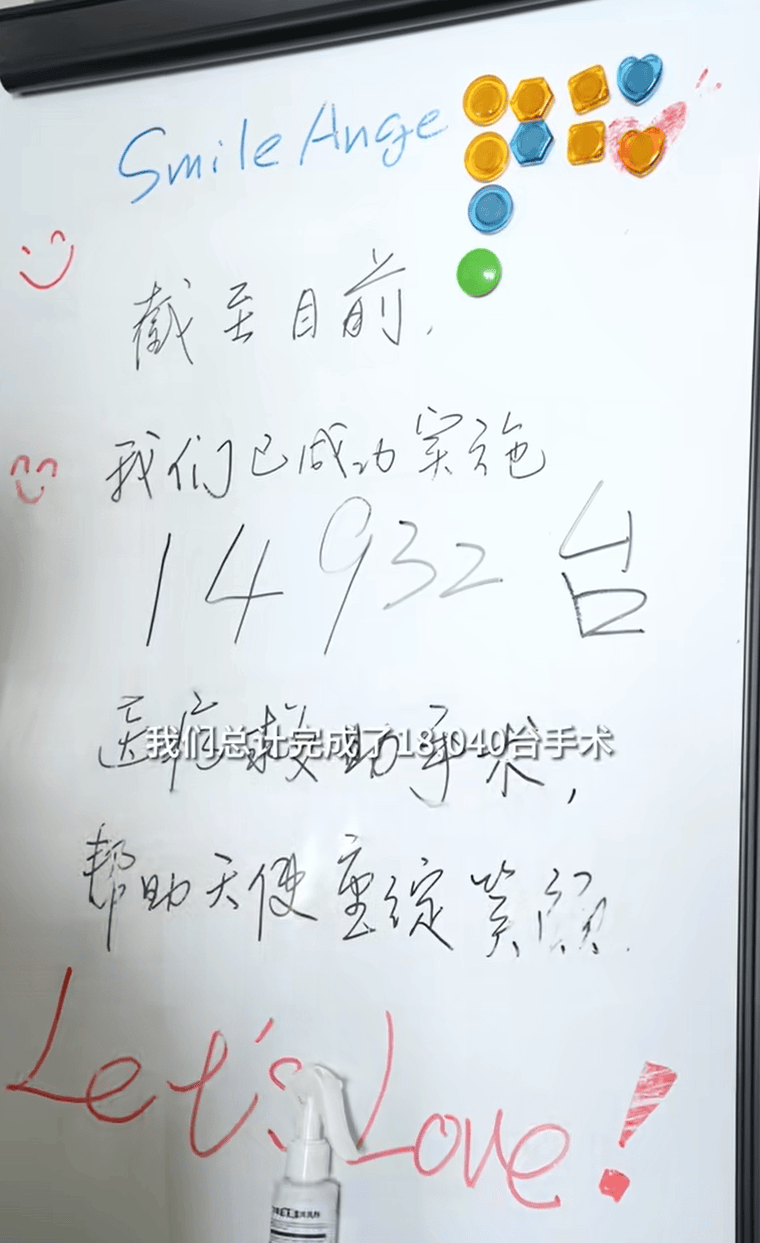 Smile Ange
截至目前,
我们已成功实施
14932台
医疗救助手术,
我们总计完成了18,040台手术
帮助天使重绽笑颜.
Let's Love!